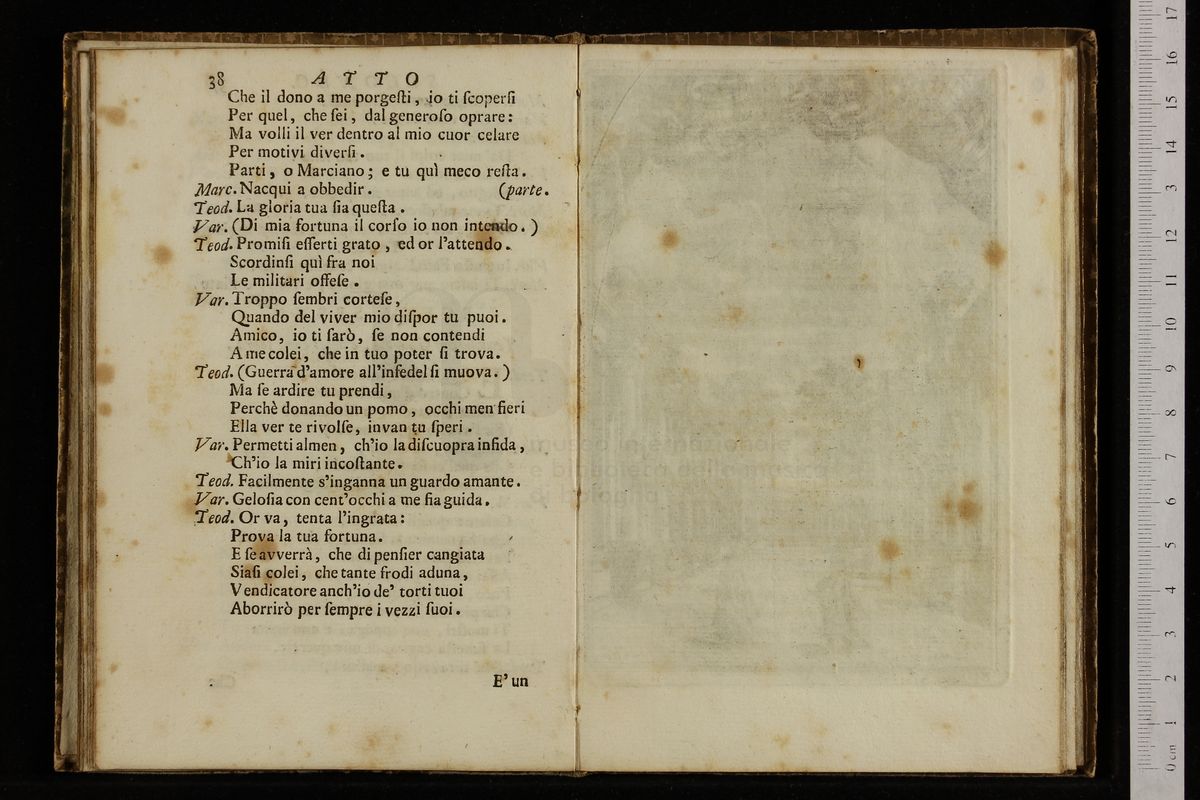 38 ATTO
Che il dono a me porgeſti, io ti ſcoperſi
Per quel, che ſei, dal generoſo oprare:
Ma volli il ver dentro al mio cuor celare
Per motivi diverſi.
Parti, o Marciano; e tu quì meco reſta.
Marc. Nacqui a obbedir. (parte.
Teod. La gloria tua ſia queſta.
Var. (Di mia fortuna il corſo io non intendo.)
Teod. Promiſi eſſerti grato, ed or l'attendo.
Scordinſi quì fra noi
Le militari offeſe.
Var. Troppo ſembri corteſe,
Quando del viver mio diſpor tu puoi.
Amico, io ti ſarò, ſe non contendi
A me colei, che in tuo poter ſi trova.
Teod. (Guerra d'amore all'infedel ſi muova.)
Ma ſe ardire tu prendi,
Perchè donando un pomo, occhi men fieri
Ella ver te rivolſe, invan tu ſperi.
Var. Permetti almen, ch'io la diſcuopra infida,
Ch'io la miri incoſtante.
Teod. Facilmente s'inganna un guardo amante.
Var. Geloſia con cent'occhi a me ſia guida.
Teod. Or va, tenta l'ingrata:
Prova la tua fortuna.
E ſe avverrà, che di penſier cangiata
Siaſi colei, che tante frodi aduna,
Vendicatore anch'io de' torti tuoi
Aborrirò per ſempre i vezzi ſuoi.
E' un
museo internazionale
e biblioteca della musica
di bologna
0 cm 1 2 3 4 5 6 7 8 9 10 11 12 13 14 15 16 17